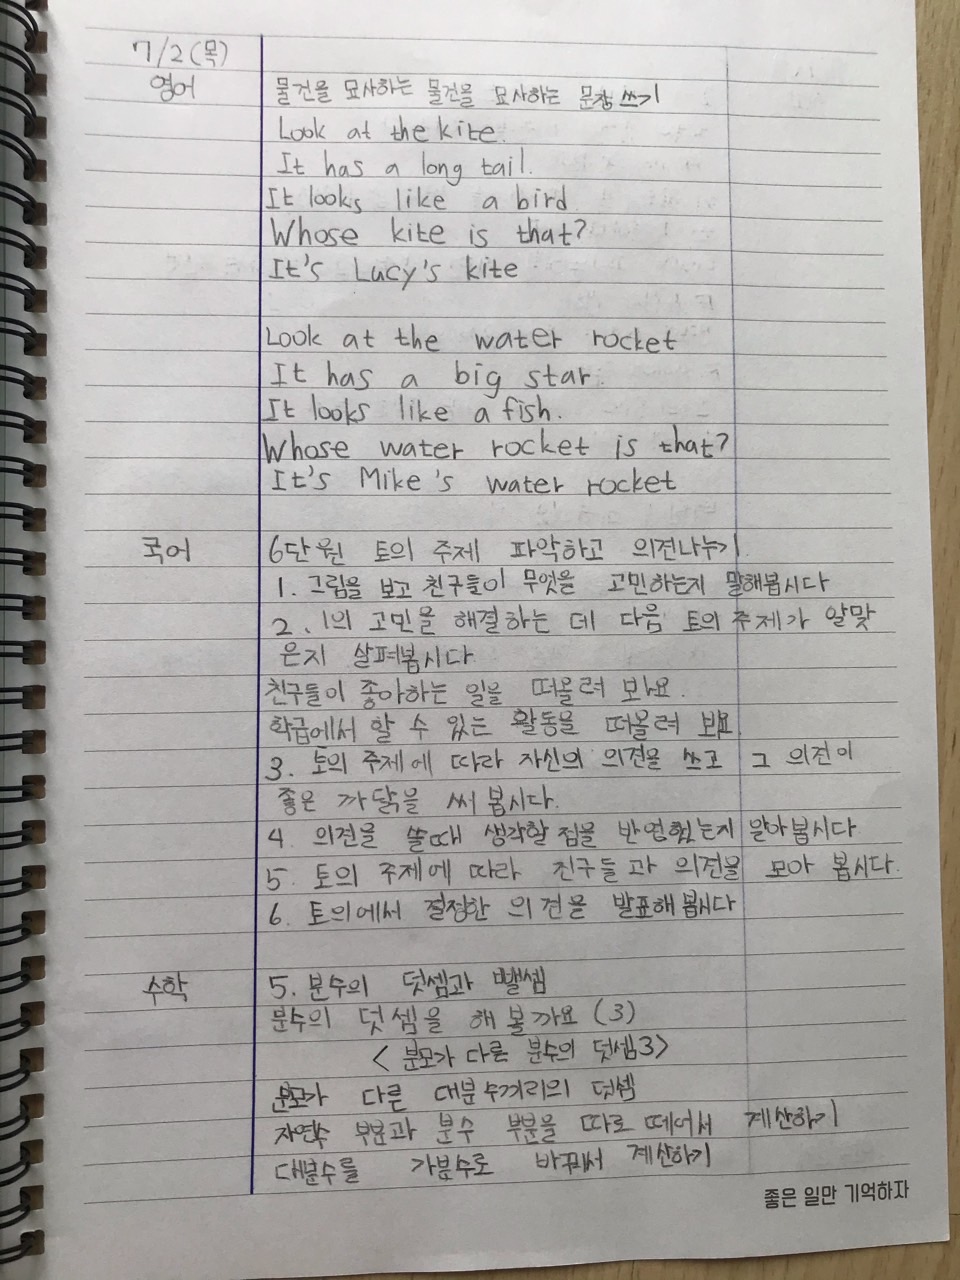 7/2(목)
영어 물건을 묘사하는 물건을 묘사하는 문장 쓰기
Look at the kite.
It has a long tail.
It looks like a bird
Whose kite is that?
It's Lucy's kite
Look at the water rocket
It has a big star.
It looks like a fish.
Whose water rocket is that?
It's Mike's water rocket
국어 6단원 토의 주제 파악하고 의견나누기
1. 그림을 보고 친구들이 무엇을 고민하는지 말해봅시다
2. 1의 고민을 해결하는 데 다음 토의 주제가 알맞
은지 살펴봅시다.
친구들이 좋아하는 일을 떠올려 보아요.
학급에서 할 수 있는 활동을 떠올려 봐요
3. 토의 주제에 따라 자신의 의견을 쓰고 그 의견이
좋은 까닭을 써 봅시다.
4. 의견을 쓸때 생각할 점을 반영했는지 알아봅시다
5. 토의 주제에 따라 친구들과 의견을 모아 봅시다.
6. 토의에서 결정한 의견을 발표해봅시다
수학 5. 분수의 덧셈과 뺄셈
분수의 덧셈을 해 볼까요 (3)
< 분모가 다른 분수의 덧셈3>
분모가 다른 대분수끼리의 덧셈
자연수 부분과 분수 부분을 따로 떼어서 계산하기
대분수를 가분수로 바꿔서 계산하기
좋은 일만 기억하자